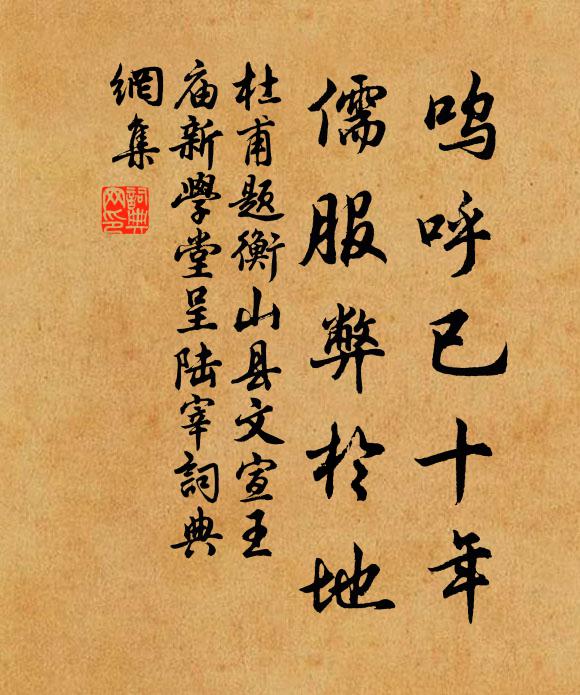 呜呼已十年
儒服弊於地
杜甫题衡山县文宣王
庙新學堂呈陆宰詞典
網集
詞典
网印